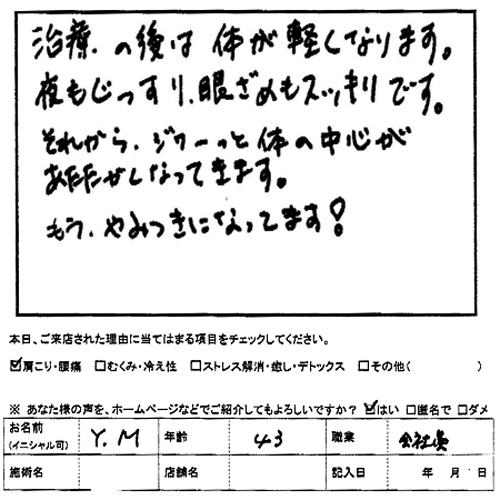 治療.の後は 体が軽くなります。
夜もじっすり、眼ざめもスッキリです。
それから、ジワーっと体の中心が
あたたかくなってきます。
もう、やみつきになってます！
本日、ご来店された理由に当てはまる項目をチェックしてください。
☑肩こり・腰痛 □むくみ・冷え性 □ストレス解消・癒し・デトックス □その他( )
※ あなた様の声を、ホームページなどでご紹介してもよろしいですか？ ☑はい □匿名で □ダメ
お名前 (イニシャル可) Y.M 年齢 43 職業 会社員
施術名 店舗名 記入日 年 月 日